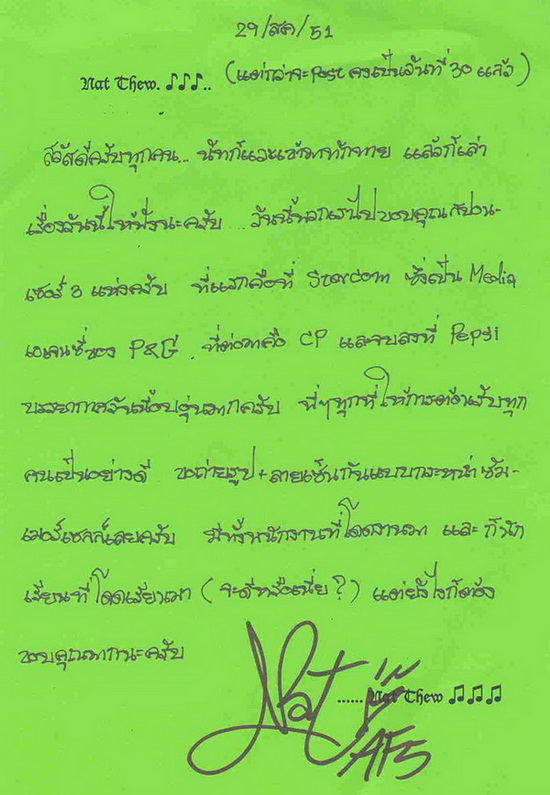 29/สค/51
Nat Thew. ♪♪♪.. (แต่กว่าจะ Post คงเป็นวันที่ 30 แล้ว)
สวัสดีครับทุกคน... นัทก็แวะเข้ามาทักทาย แล้วก็เล่า
เรื่องวันนี้ให้ฟังนะครับ ...วันนี้พวกเราไปขอบคุณสปอน-
เซอร์ 3 แห่งครับ ที่แรกคือที่ Starcom ซึ่งเป็น Media
เอเจนซี่ของ P&G, ที่ต่อมาคือ CP และจบลงที่ Pepsi
บรรยากาศวันนี้อบอุ่นมากครับ พี่ๆทุกที่ให้การต้อนรับทุก
คนเป็นอย่างดี ขอถ่ายรูป+ลายเซ็นกันแบบกระหน่ำซัม-
เมอร์เซลล์เลยครับ มีทั้งพนักงานที่โดดงานมา และ ก็นัก
เรียนที่โดดเรียนมา (จะดีหรือเนี่ย?) แต่ยังไงก็ต้อง
ขอบคุณมากนะครับ
Nat
...... Nat Thew ♫♫♫
AF5